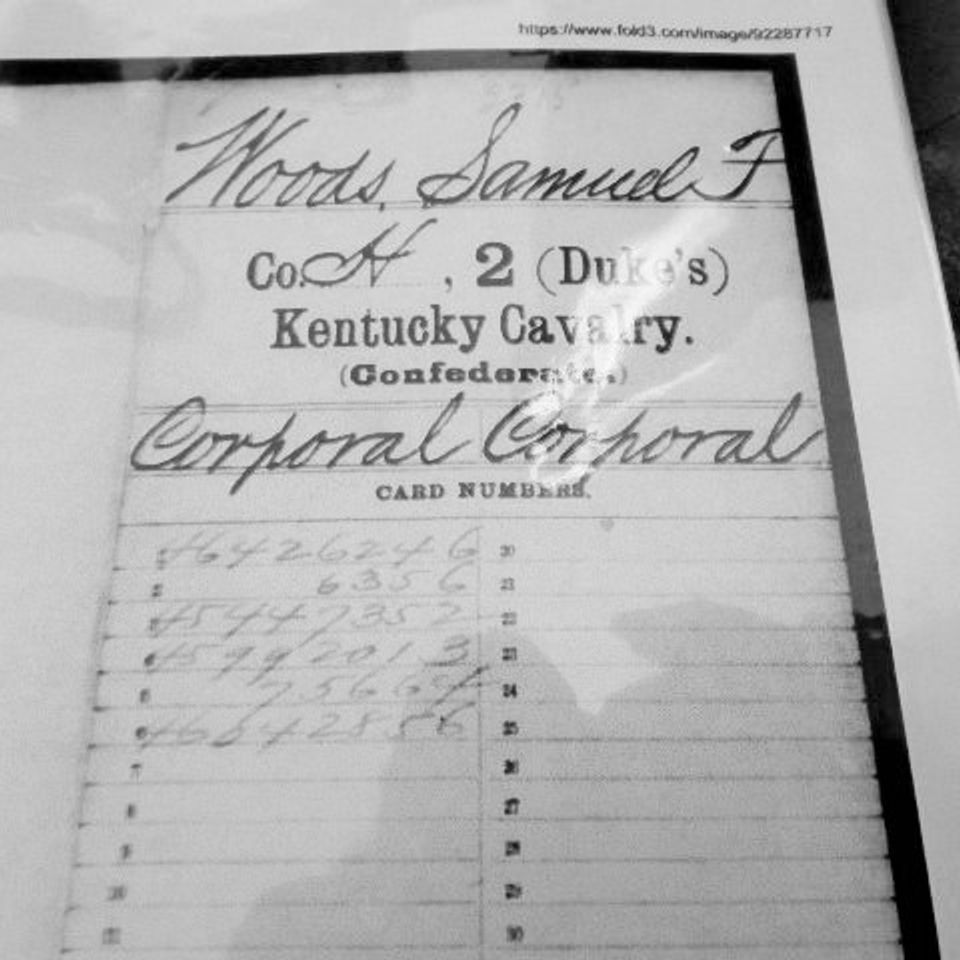 https://www.fold3.com/image/92287717
Woods, Samuel F
Co. H, 2 (Duke's)
Kentucky Cavalry.
(Confederate.)
Corporal Corporal
CARD NUMBERS.
1 46426246 20
2 6356 21
45447352 22
4 45992013 23
5 75664 24
6 28 56 25
7 26
8 27
9 28
10 29
11 30